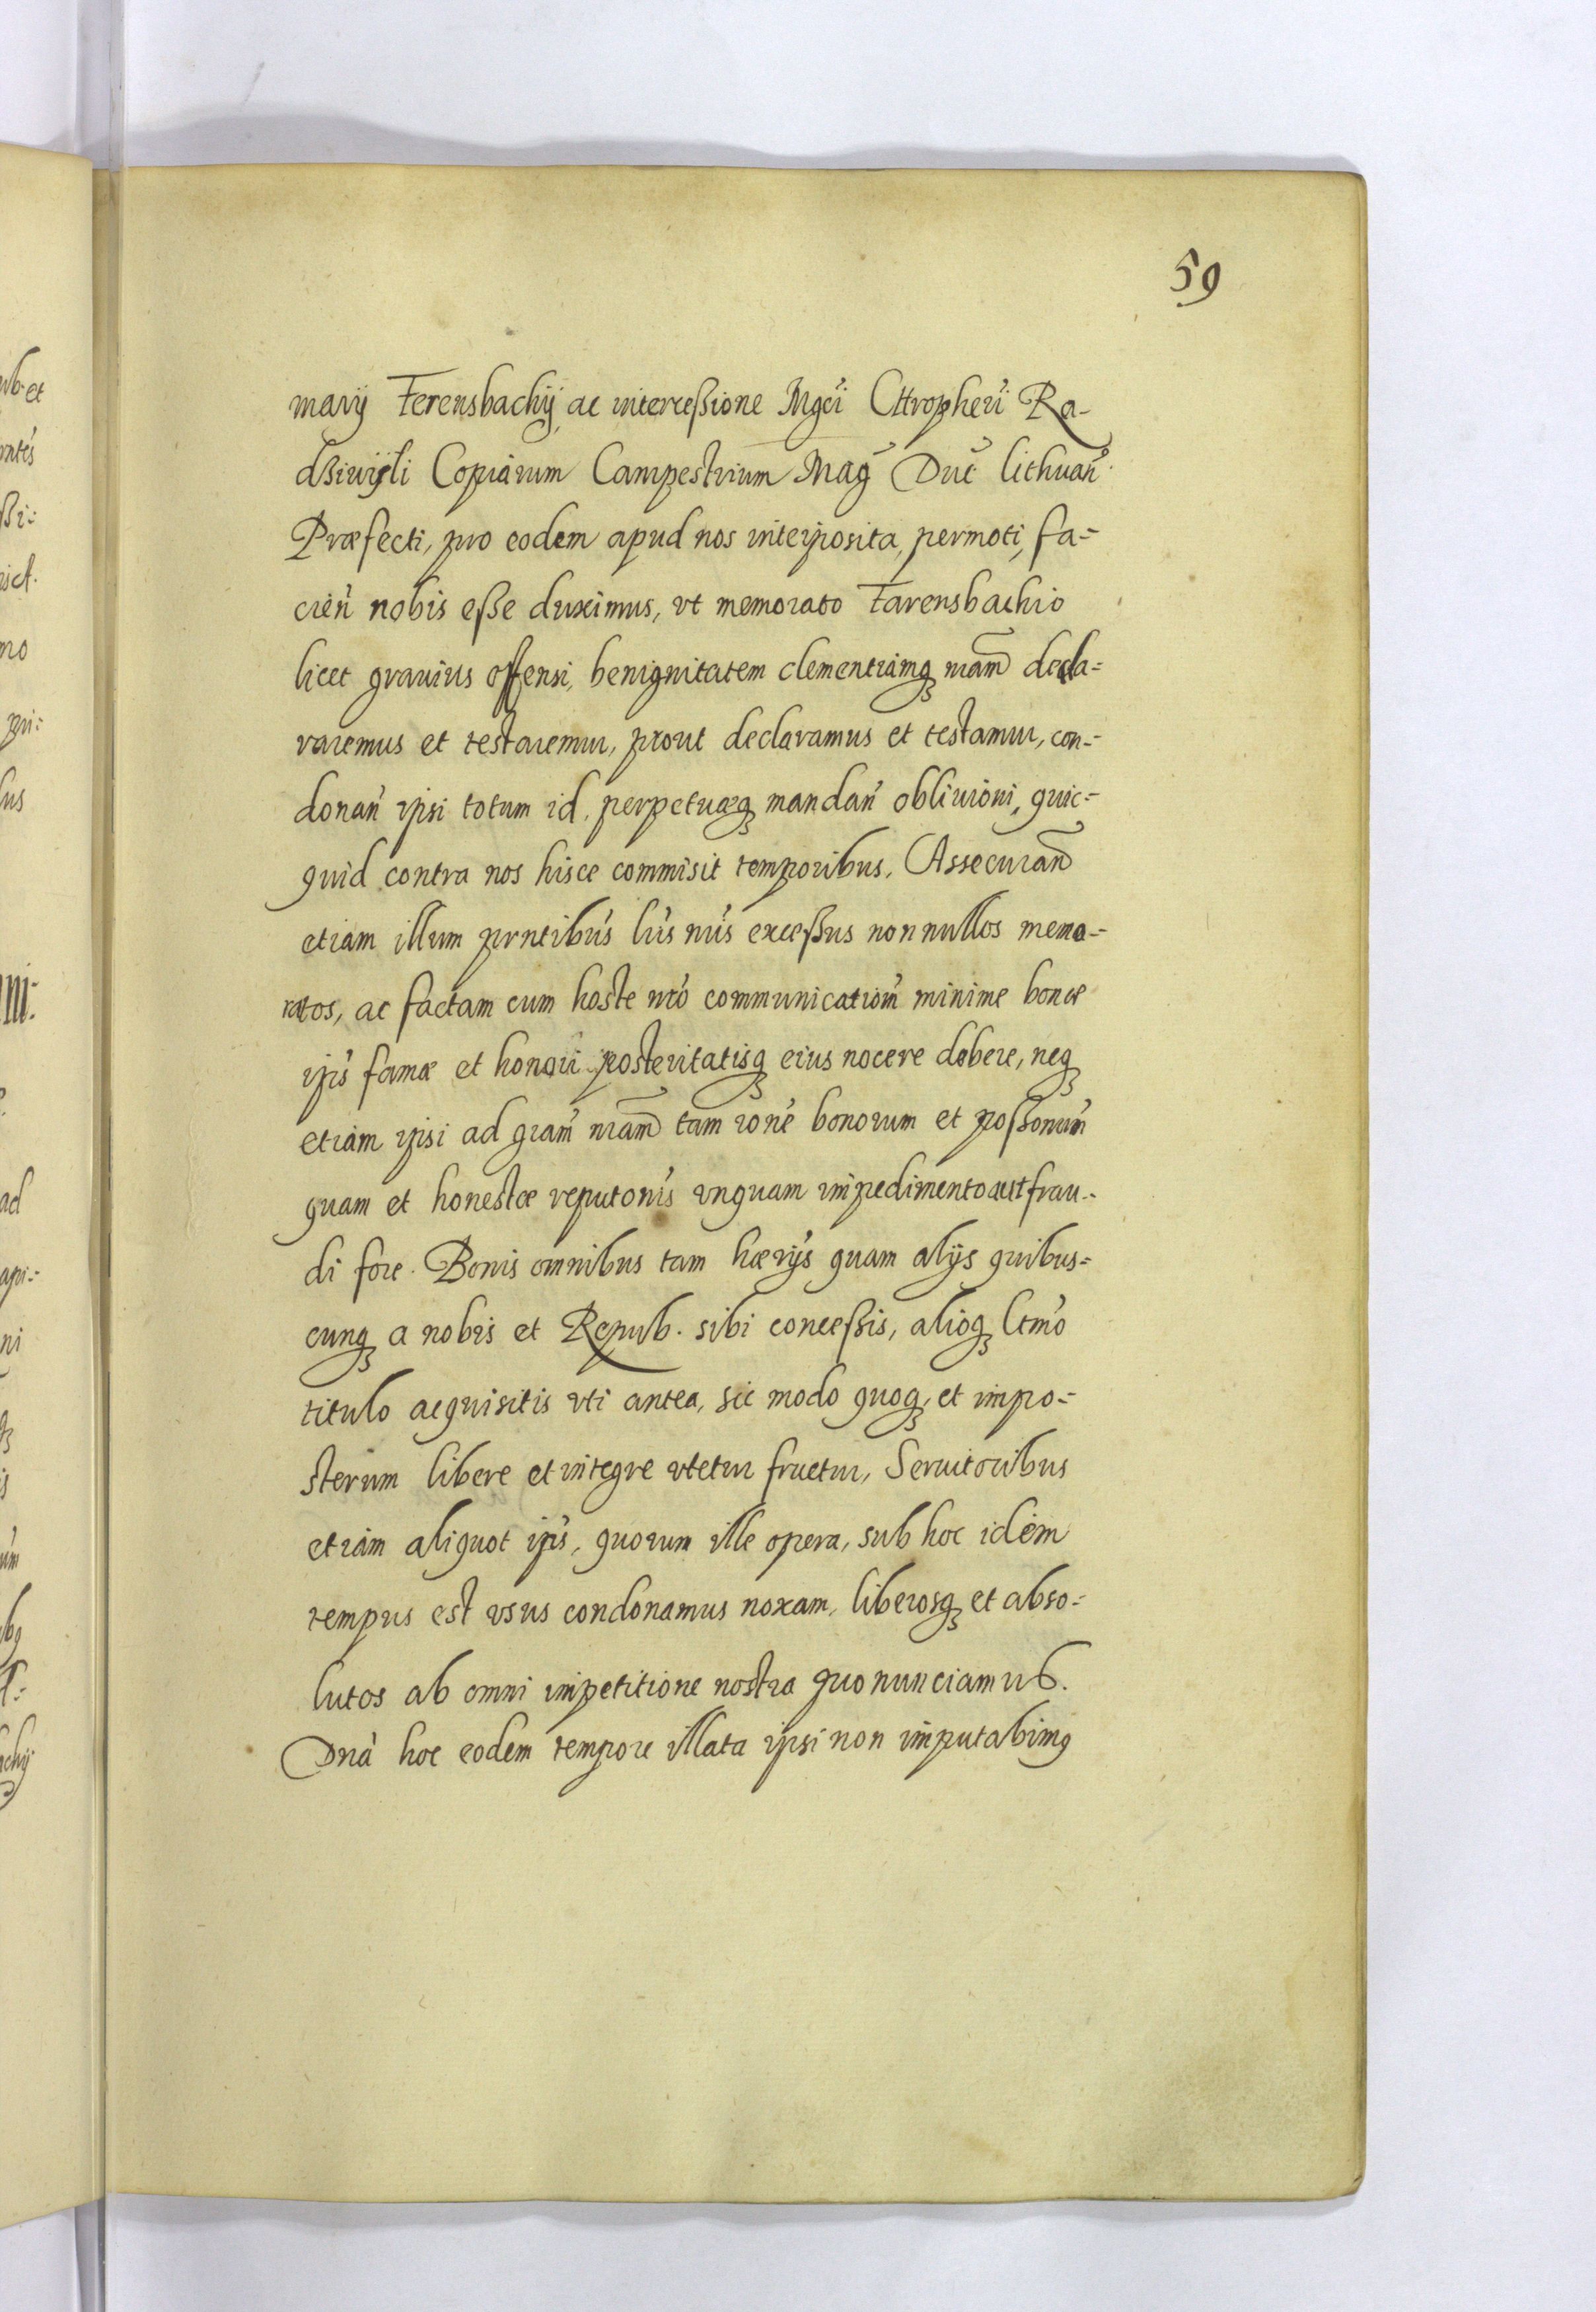 59
marij Ferensbachij, ac intercessione Mgci Chtropheri Ra-
dsiwijli Copiarum Campestrium Mag Duc Lithuan
Præfecti, pro eodem apud nos interposita, permoti, fa-
cien nobis esse duximus, vt memorato Farensbachio
licet grauius offensi, benignitatem clementiamq nram decla-
raremus et testaremur, prout declaramus et testamur, con-
donan ipsi totum id, perpetuæq mandan obliuioni, quic-
quid contra nos hisce commisit temporibus. Assecuran
etiam illum prntibus lris nris excessus nonnullos memo-
ratos, ac factam cum hoste nro communicationem minime bonæ
ipis famæ et honori posteritatisq eius nocere debere, neq
etiam ipsi ad gram nram tam rone bonorum et possonum
quam et honestæ reputonis vnquam impedimento aut frau-
di fore. Bonis omnibus tam hærijs quam alijs quibus-
cunq a nobis et Repub. sibi concessis, alioq ltmo
titulo acquisitis vti antea, sic modo quoq, et impo-
sterum libere et integre vtetur fruetur, Seruitoribus
etiam aliquot ipis, quorum ille opera, sub hoc idem
tempus est vsus condonamus noxam, liberosq et abso-
lutos ab omni impetitione nostra quonunciamus.
Dna hoc eodem tempore illata ipsi non imputabimq